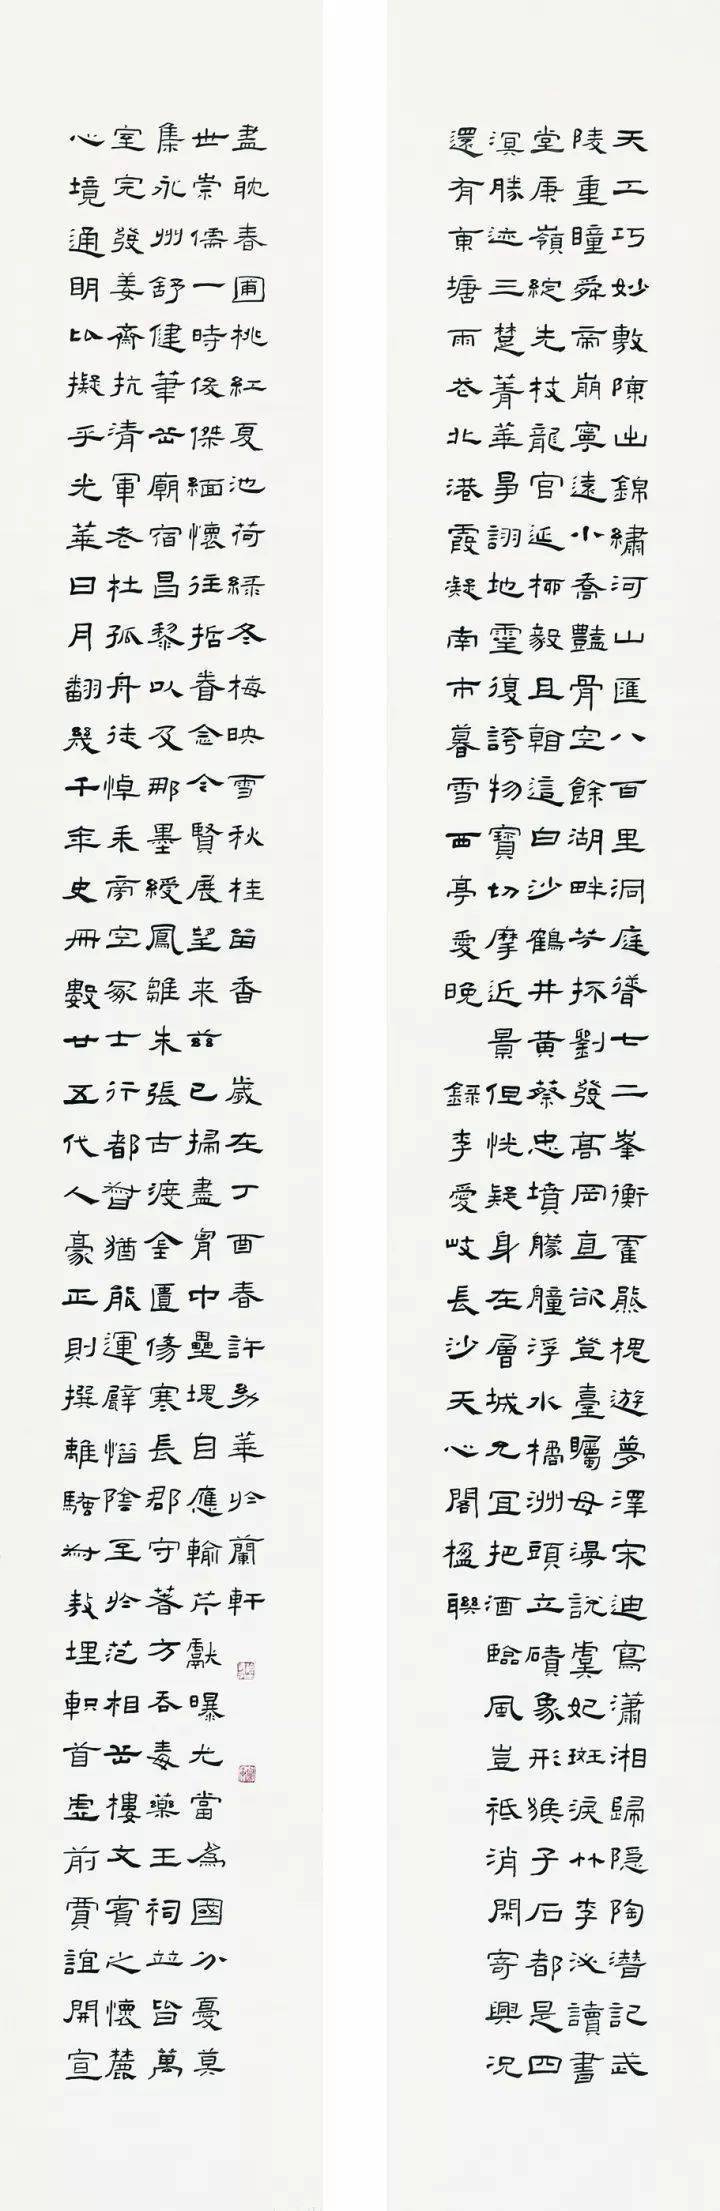 天工巧妙敷陳出錦繡河山匯八百里洞庭聳七二峯衡霍熊槐遊夢澤宋迪寫瀟湘歸隱陶潛記武
陵重瞳舜帝崩寧遠小喬豔骨空餘湖畔芳抔劉發高岡直欲登臺矚母漫說虞妃斑淚竹李泌讀書
堂庚嶺綻先枝龍官延柳毅且翱這白沙鶴井黃蔡忠墳艨艟浮水橘洲頭立磧象形猴子石都是四
溟勝迹三楚菁華爭詡地靈復誇物寶切摩近景但恍疑身在層城尤宜把酒臨風豈祗消閑寄興況
還有東塘雨花北港霞凝南市暮雪西亭愛晚
錄李愛岐長沙天心閣楹聯
心境通明比擬乎光華日月翻幾千年史冊數廿五代人豪正則撰離騷對敖埋軹首虛前賈誼開宣
室完發姜齋抗清軍老杜孤舟徒悼耒帝空冢士行都督猶能運甓惜陰至於范相岳樓文賓之懷麓
集永州舒健筆岳廟宿昌黎以及那墨綬鳳雛朱張古渡金匱傷寒長郡守著方吞毒藥王祠並皆萬
世崇儒一時俊傑緬懷往哲眷念今賢展望來茲已掃盡胸中壘塊自應輸芹獻曝尤當爲國分憂莫
盡耽春圃桃紅夏池荷綠冬梅映雪秋桂留香
歲在丁酉春許易華於蘭軒